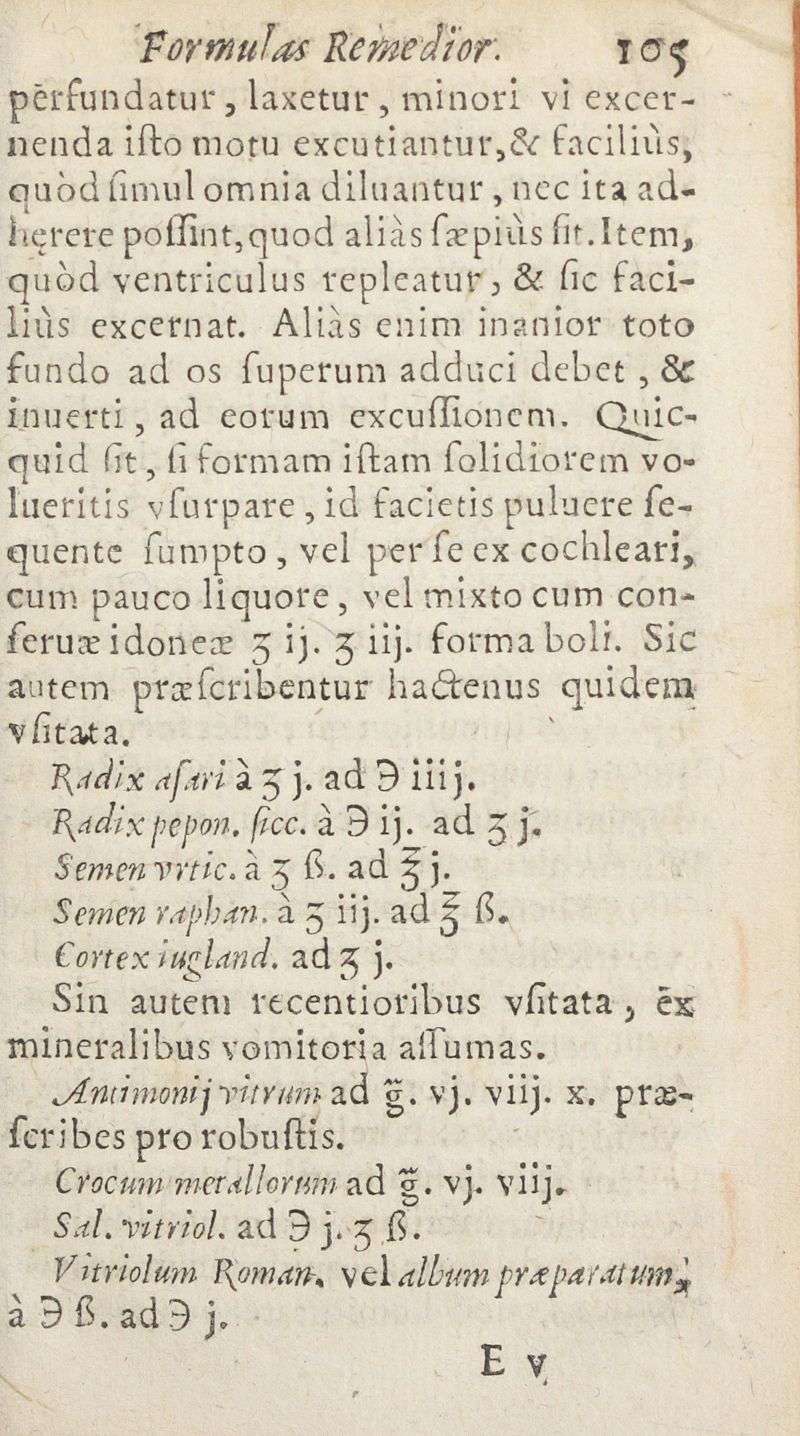 Formulas Remedior. 105
perfundatur, laxetur, minori vi excer-
nenda iſto motu excutiantur,& faciliùs,
quòd ſimul omnia diluantur, nec ita ad-
hęrere poſſint, quod aliàs ſæpiùs ſit. Item,
quòd ventriculus repleatur, & ſic faci-
liùs excernat. Aliàs enim inanior toto
fundo ad os ſuperum adduci debet, &
inuerti, ad eorum excuſſionem. Quic-
quid ſit, ſi formam iſtam ſolidiorem vo-
lueritis vſurpare, id facietis puluere ſe-
quente ſumpto, vel per ſe ex cochleari,
cum pauco liquore, vel mixto cum con-
ſeruæ idoneæ ʒ ij. ʒ iij. forma boli. Sic
autem præſcribentur hactenus quidem
vſitata.
Radix aſari à ʒ j. ad ℈ iiij.
Radix pepon. ſicc. à ℈ ij. ad ʒ j.
Semen vrtic. à ʒ ß. ad ℥ j.
Semen raphan. à ʒ iij. ad ℥ ß.
Cortex iugland. ad ʒ j.
Sin autem recentioribus vſitata, ex
mineralibus vomitoria aſſumas.
Antimonij vitrum ad g̃. vj. viij. x. præ-
ſcribes pro robuſtis.
Crocum metallorum ad g̃. vj. viij.
Sal. vitriol. ad ℈ j. ʒ ß.
Vitriolum Roman. vel album præparatum,
à ℈ ß. ad ℈ j.
E v